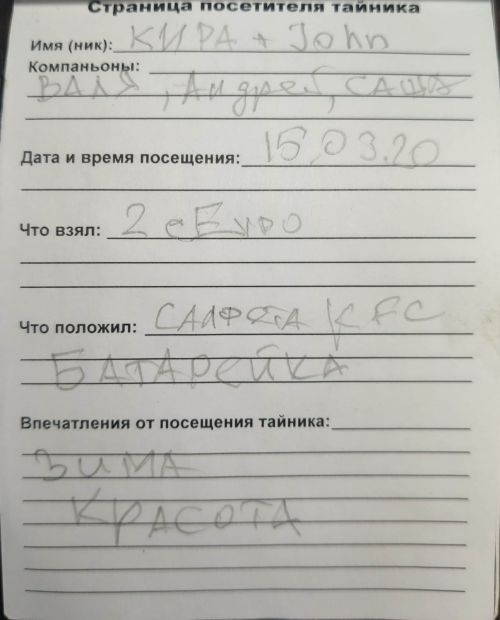 Страница посетителя тайника
Имя (ник): КИРА + John
Компаньоны:
ВАЛЯ, Андрей, САША
Дата и время посещения: 15.03.20
Что взял: 2 Евро
Что положил: САЛФЕТА KFC
БАТАРЕЙКА
Впечатления от посещения тайника:
ЗИМА
КРАСОТА